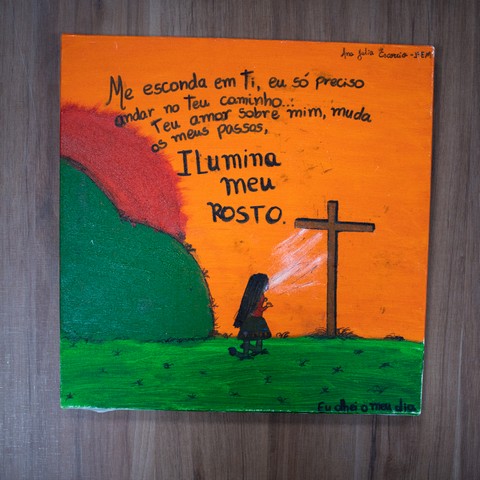 Ana Julia
Me esconda em Ti, eu só preciso
andar no teu caminho...
Teu amor sobre mim, muda
os meus passas,
ILumina
meu
ROSTO.
Eu olhei o meu dia